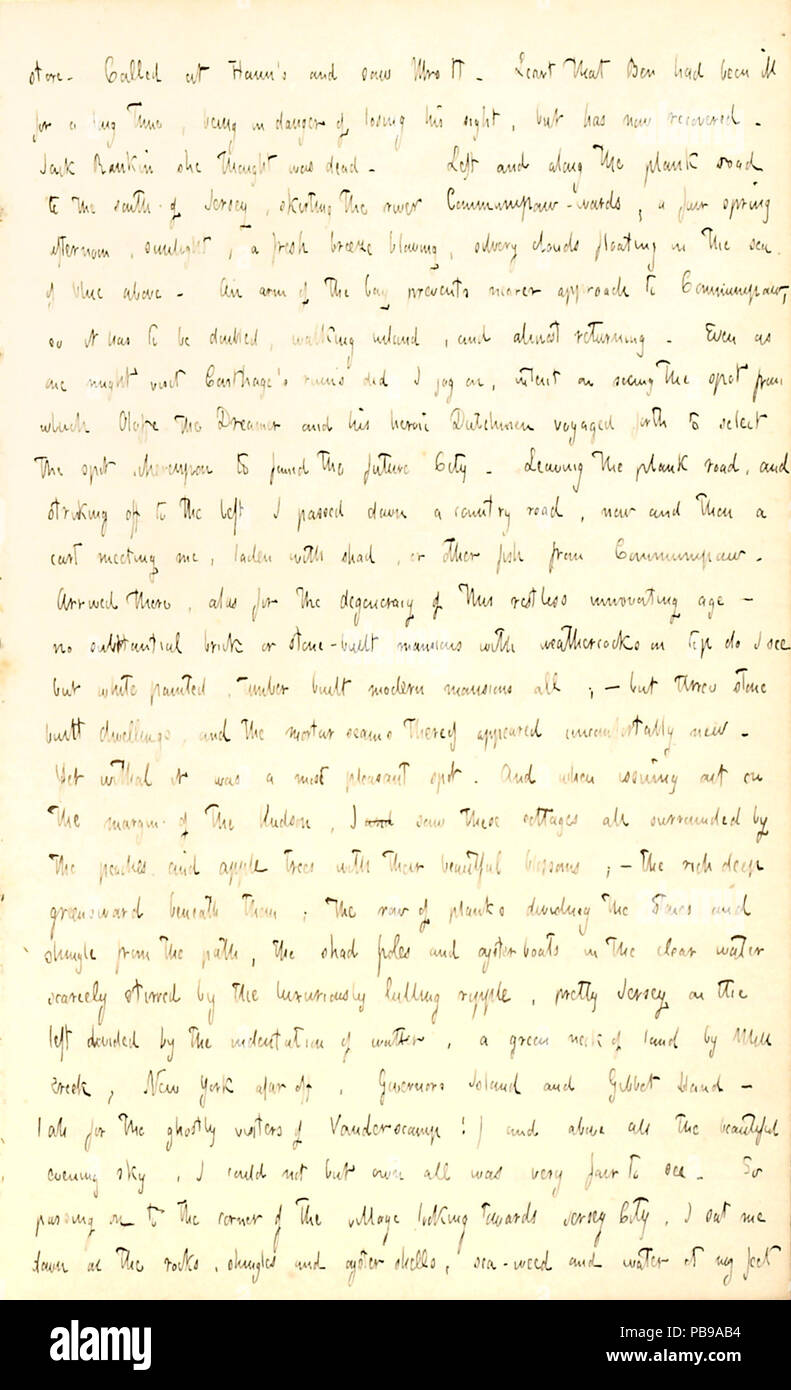 store. Called at Hann's and saw Mrs H. Learnt that Ben had been ill
for a long time, being in danger of losing his sight, but has now recovered.
Jack Rankin she thought was dead. Left and along the plank road
to the south of Jersey, skirting the river Communipaw-wards, a fair spring
afternoon, sunlight, a fresh breeze blowing, silvery clouds floating in the sea
of blue above. An arm of the bay prevents nearer approach to Communipaw,
so it has to be doubled, walking inland, and almost returning. Even as
one might visit Carthage's ruins did I jog on, intent on seeing the spot from
which Oloffe the Dreamer and his heroic Dutchmen voyaged forth to select
the spot whereupon to found the future City. Leaving the plank road, and
striking off to the left I passed down a country road, now and then a
cart meeting me, laden with shad, or other fish from Communipaw.
Arrived there, alas for the degeneracy of this restless innovating age —
no substantial brick or stone-built mansions with weathercocks on top do I see
but white painted, timber built modern mansions all; — but three stone
built dwellings, and the mortar seams thereof appeared uncomfortably new.
Yet withal it was a most pleasant spot. And when issuing out on
the margin of the Hudson, I and saw these cottages all surrounded by
the peaches and apple trees with their beautiful blossoms; — the rich deep
greensward beneath them; the row of planks dividing the and
shingle from the path, the shad poles and oyster boats in the clear water
scarcely stirred by the luxuriously lulling ripple, pretty Jersey on the
left divided by the indentation of water, a green neck of land by Mill
Creek, New York afar off, Governors Island and Gibbet Island —
(ah for the ghostly visiters of Vanderscamp!) and above all the beautiful
evening sky, I could not but own all was very fair to see. So
passing on to the corner of the village looking towards Jersey City, I sat me
down on the rocks, shingles and oyster shells, sea-weed and water at my feet
alamy
Image ID: PB9AB4
www.alamy.com